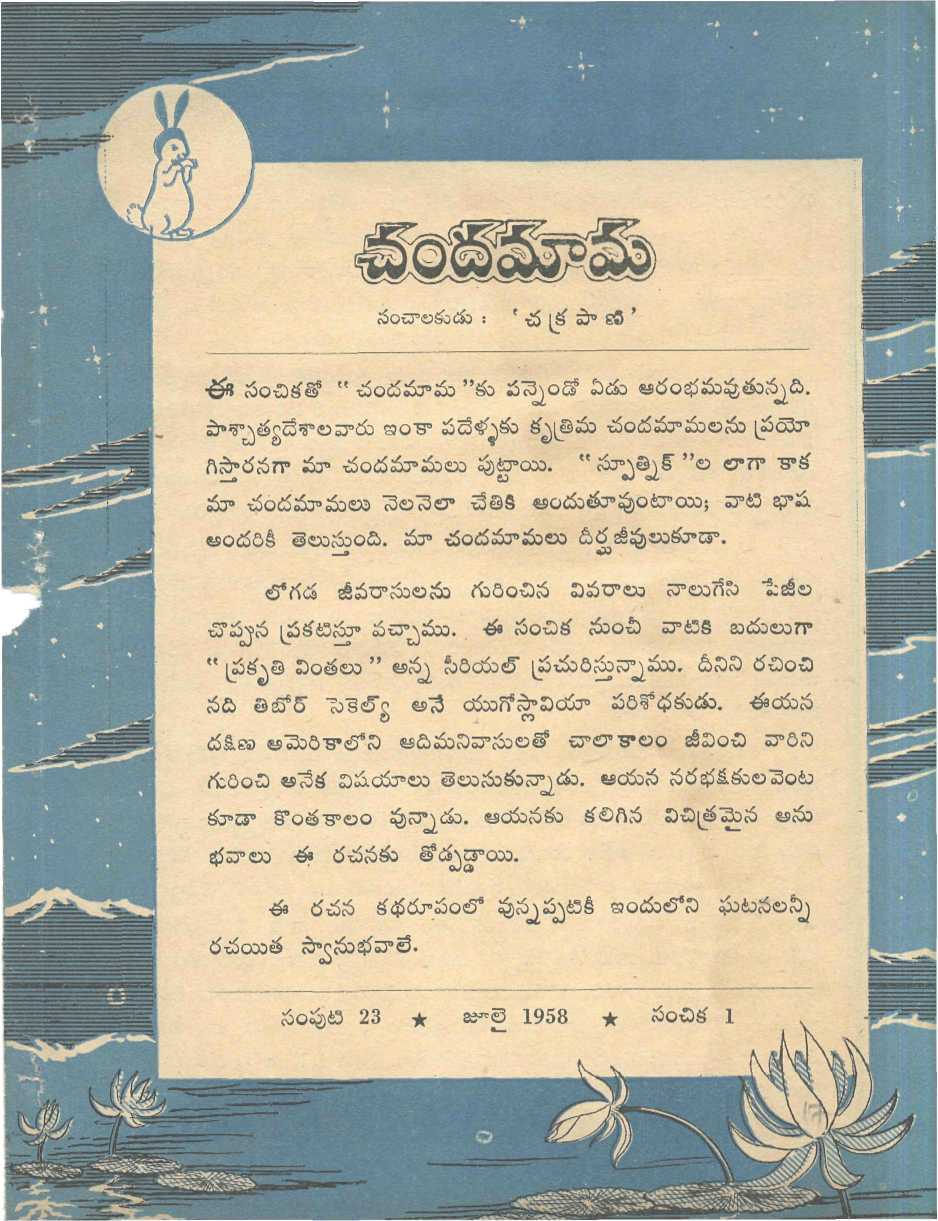 చందమామ
సంచాలకుడు : ' చక్రపాణి '
ఈ సంచికతో “ చందమామ ”కు పన్నెండో ఏడు ఆరంభమవుతున్నది.
పాశ్చాత్యదేశాలవారు ఇంకా పదేళ్ళకు కృత్రిమ చందమామలను ప్రయో
గిస్తారనగా మా చందమామలు పుట్టాయి. “ స్పూత్నిక్ ”ల లాగా కాక
మా చందమామలు నెలనెలా చేతికి అందుతూవుంటాయి; వాటి భాష
అందరికీ తెలుస్తుంది. మా చందమామలు దీర్ఘజీవులుకూడా.
లోగడ జీవరాసులను గురించిన వివరాలు నాలుగేసి పేజీల
చొప్పున ప్రకటిస్తూ వచ్చాము. ఈ సంచిక నుంచీ వాటికి బదులుగా
“ ప్రకృతి వింతలు ” అన్న సీరియల్ ప్రచురిస్తున్నాము. దీనిని రచించి
నది తిబోర్ సెకెల్య్ అనే యుగోస్లావియా పరిశోధకుడు. ఈయన
దక్షిణ అమెరికాలోని ఆదిమనివాసులతో చాలాకాలం జీవించి వారిని
గురించి అనేక విషయాలు తెలుసుకున్నాడు. ఆయన నరభక్షకులవెంట
కూడా కొంతకాలం వున్నాడు. ఆయనకు కలిగిన విచిత్రమైన అను
భవాలు ఈ రచనకు తోడ్పడ్డాయి.
ఈ రచన కథరూపంలో వున్నప్పటికీ ఇందులోని ఘటనలన్నీ
రచయిత స్వానుభవాలే.
సంపుటి 23 ★ జూలై 1958 ★ సంచిక 1